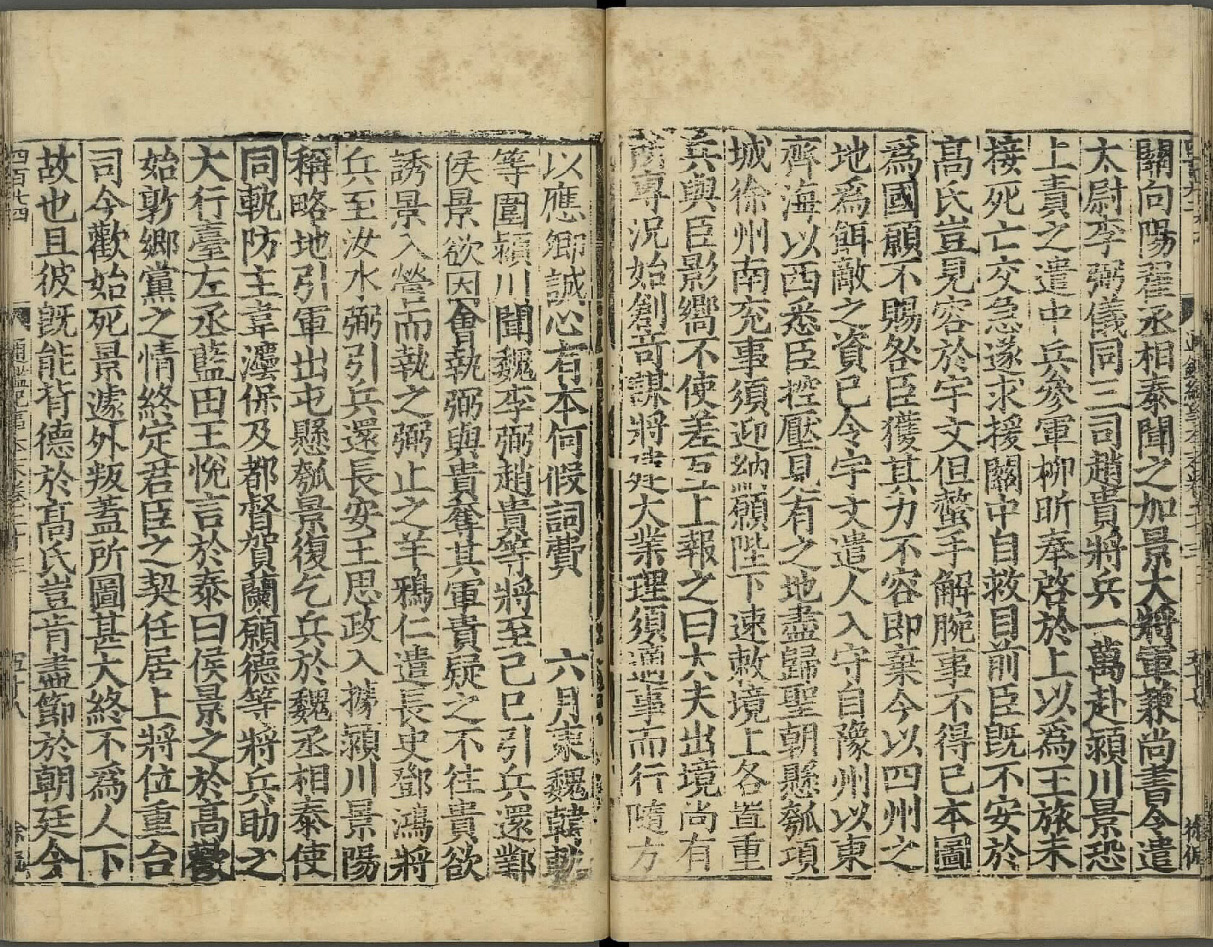 關向陽翟丞相泰聞之加景大將軍兼尚書令遣
太尉李弼儀同三司趙貴將兵一萬赴潁川景恐
上責之遣中兵參軍柳昕奉啓於上以爲王旅未
接死亡交急遂求援關中自救目前臣旣不安於
髙氏豈見容於宇文但螫手解腕事不得已本圖
爲國願不賜咎臣獲其力不容即棄今以四州之
地爲餌敵之資已令宇文遣人入守自豫州以東
齊海以西悉臣控壓見有之地盡歸聖朝懸瓠項
城徐州南兖事須迎納願陛下速敕境上各置重
兵與臣影嚮不使差互上報之曰大夫出境尚有
所專況始創竒謀將建大業理須適事而行隨方
以應卿誠心有本何假詞費　六月東魏韓軌
等圍潁川聞魏李弼趙貴等將至己巳引兵還鄴
侯景欲因會執弼與貴奪其軍貴疑之不往貴欲
誘景入營而執之弼止之羊鴉仁遣長史鄧鴻將
兵至汝水弼引兵還長安王思政入據潁川景陽
稱略地引軍出屯懸瓠景復乞兵於魏丞相泰使
同軌防主韋灋保及都督賀蘭願德等將兵助之
大行臺左丞藍田王悅言於泰曰侯景之於髙歡
始敦鄉黨之情終定君臣之契任居上將位重台
司今歡始死景遽外叛蓋所圖甚大終不爲人下
故也且彼旣能背德於髙氏豈肯盡節於朝廷今
四百廿四
通鑑紀事本末卷
五十八